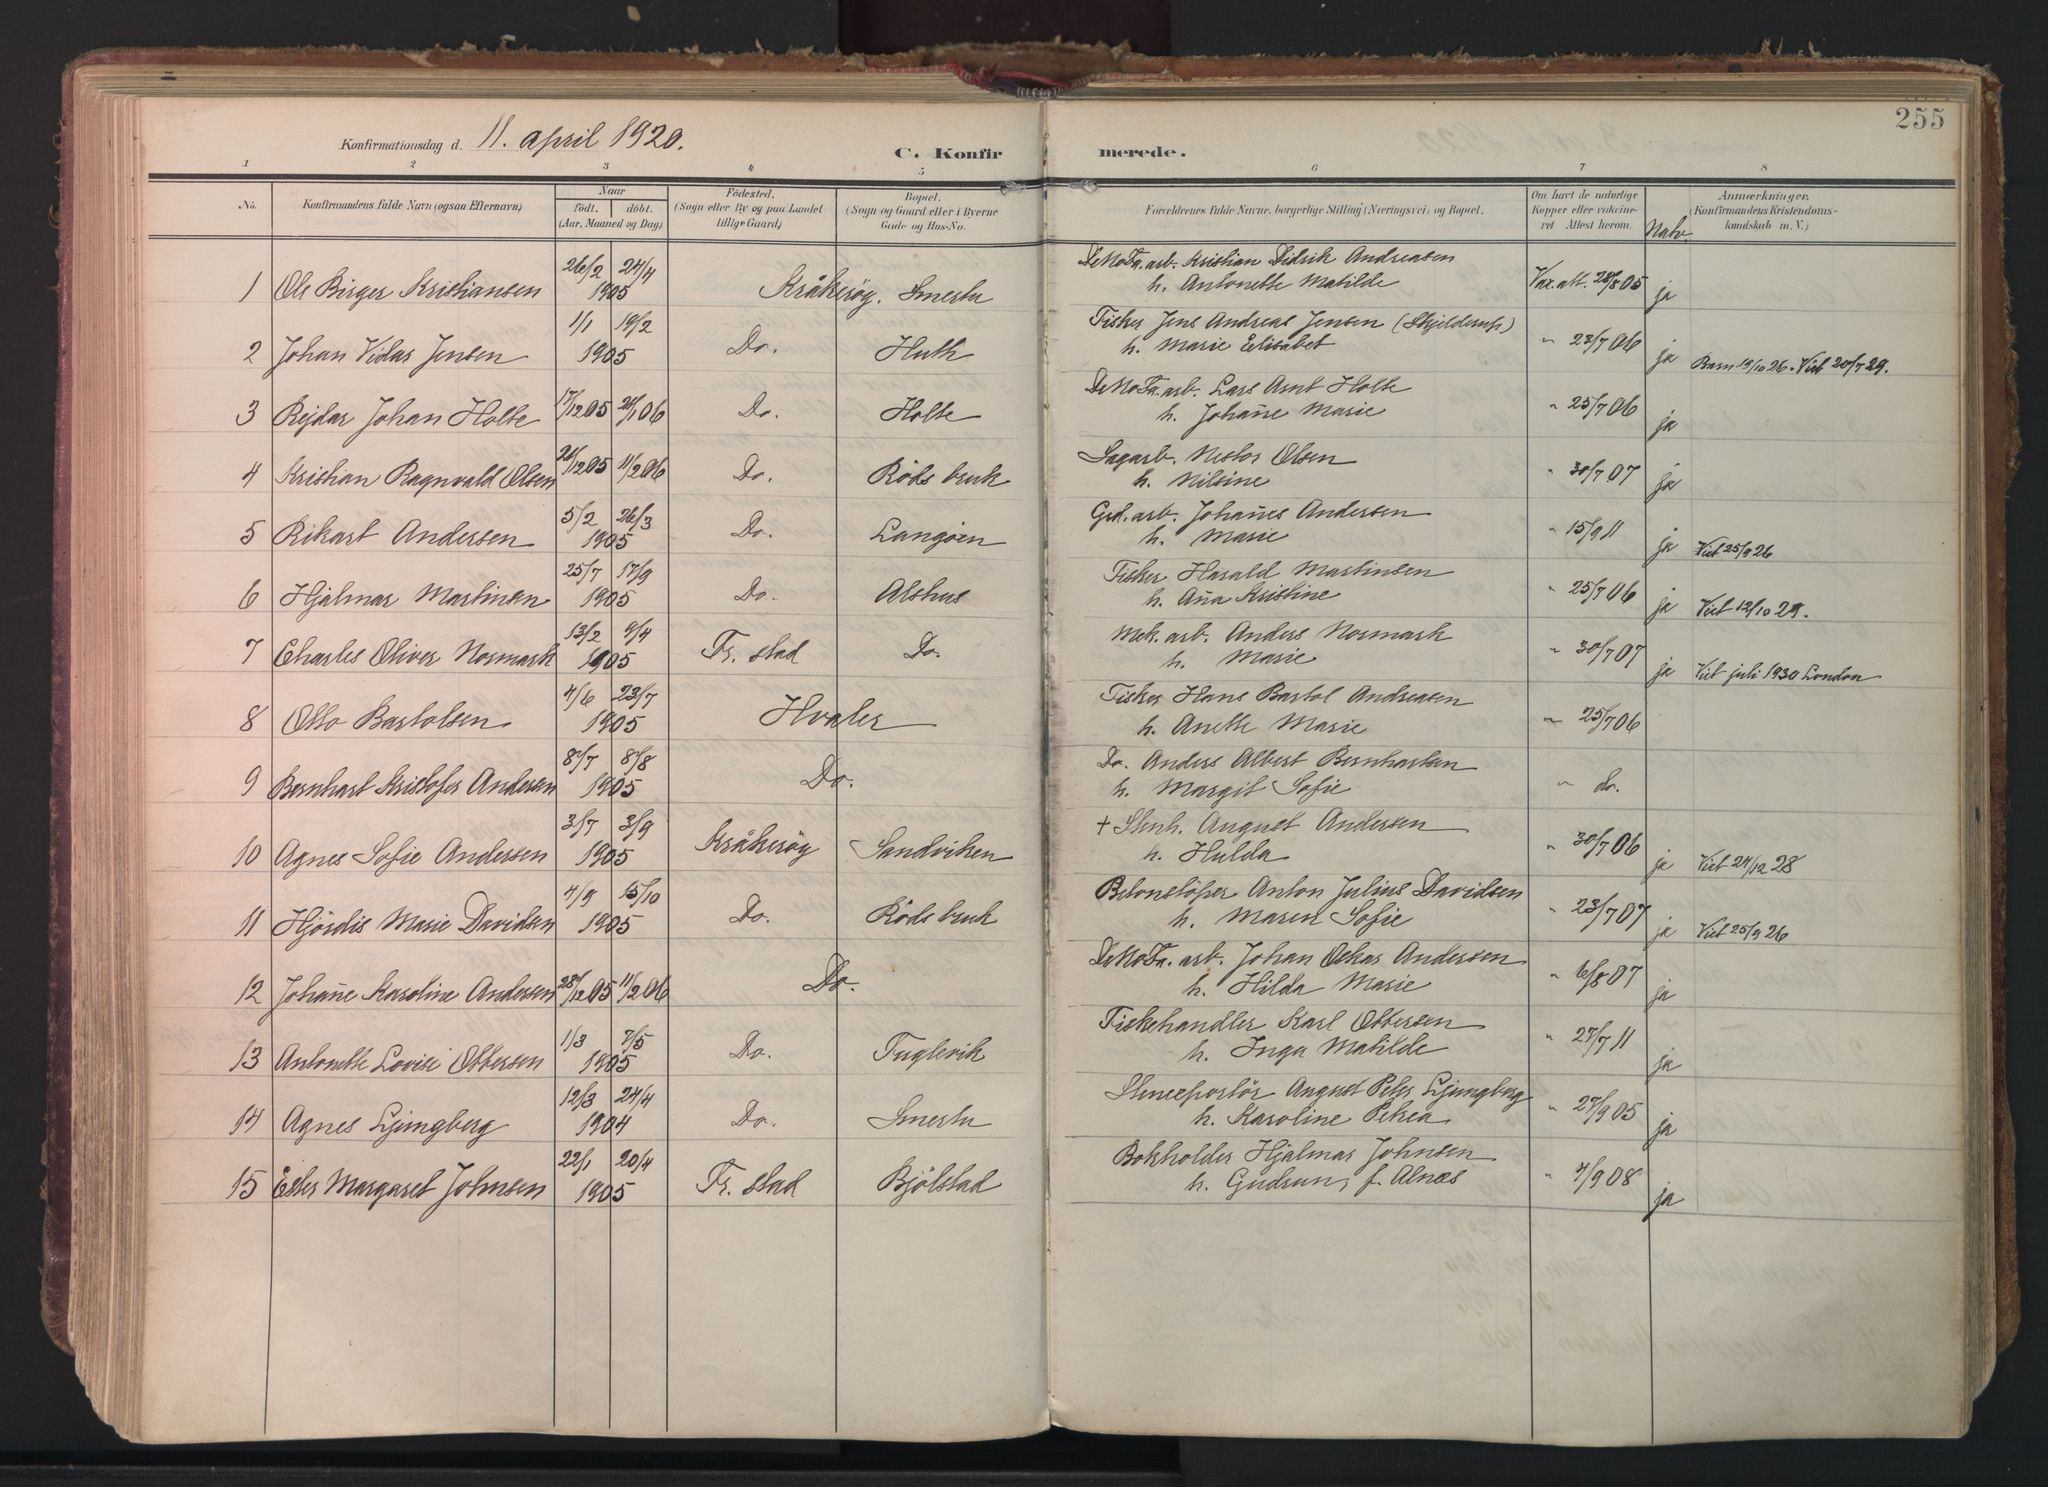 255
Konfirmationsdag d. 11. april 1920.
C. Konfirmerede.
1 2 3 4 5 6 7 8
No. Konfirmandens fulde Navn (ogsaa Efternavn) Naar födt. döbt. (Aar, Maaned og Dag) Födested. (Sogn eller By og paa Landet tillige Gaard) Bopæl. (Sogn og Gaard eller i Byerne Gade og Hus-No. Forældrenes fulde Navne, borgerlige Stilling (Næringsvei) og Bopæl. Om havt de naturlige Kopper eller vakcineret. Attest herom. Natv. Anmærkninger. (Konfirmandens Kristendomskundskab m. V.)
1 Ole Birger Kristiansen 26/2 24/4 1905 Kråkerög. Smertu DeNoFa. arb. Kristian Didrik Andreasen h. Antonette Matilde Vax. att. 28/8 05 ja
2 Johan Vidar Jensen 1/1 19/2 1905 Do. Huth Fisker Jens Andreas Jensen (Skjelderup) h. Marie Elisabet " 23/7 06 ja Barn 19/10 26. Viet 20/7 29.
3 Rejdar Johan Holte 17/12 05 21/1 06 Do. Holte DeNoFa. arb. Lars Arnt Holte h. Johan̄e Marie " 25/7 06 ja
4 Kristian Ragnvald Olsen 21/12 05 11/2 06 Do. Röds bruk Sagarb. Nestor Olsen h. Nilsine " 30/7 07 ja
5 Rikart Andersen 5/2 26/3 1905 Do. Langöen Grd. arb. Johan̄es Andersen h. Marie " 15/9 11 ja Viet 25/9 26
6 Hjalmar Martinsen 25/7 17/9 1905 Do. Alshus Fisker Harald Martinsen h. An̄a Kristine " 25/7 06 ja Viet 12/10 29.
7 Charles Oliver Normark 13/2 9/4 1905 Fr. stad Do. Mek. arb. Anders Normark h. Marie " 30/7 07 ja Viet juli 1930 London
8 Otto Bartolsen 4/6 23/7 1905 Hvaler Fisker Hans Bartol Andreasen h. Anette Marie " 25/7 06
9 Bernhart Kristofer Andersen 8/7 8/8 1905 Do. Do. Anders Albert Bernhartsen h. Margit Sofie " do.
10 Agnes Sofie Andersen 3/7 3/9 1905 Kråkerög Sandviken + Stenh. August Andersen h. Hulda " 30/7 06 ja Viet 24/12 28
11 Hjördis Marie Davidsen 4/9 15/10 1905 Do. Röds bruk Betonstöper Anton Julius Davidsen h. Maren Sofie " 23/7 07 ja Viet 25/9 26
12 Johan̄e Karoline Andersen 28/12 05 11/2 06 Do. DeNoFa. arb. Johan Oskar Andersen h. Hilda Marie " 6/8 07 ja
13 Antonette Lovise Ottersen 1/3 7/5 1905 Do. Fuglevik Fiskehandler Karl Ottersen h. Inga Matilde " 27/7 11 ja
14 Agnes Ljungberg 12/3 24/4 1904 Do. Smertu Stenexportör August Peter Ljungberg h. Karoline Petrea " 27/9 05 ja
15 Ester Margaret Johnsen 22/1 20/4 1905 Fr. stad Bjölstad Bokholder Hjalmar Johnsen h. Gudrun, f. Alnæs " 7/9 08 ja